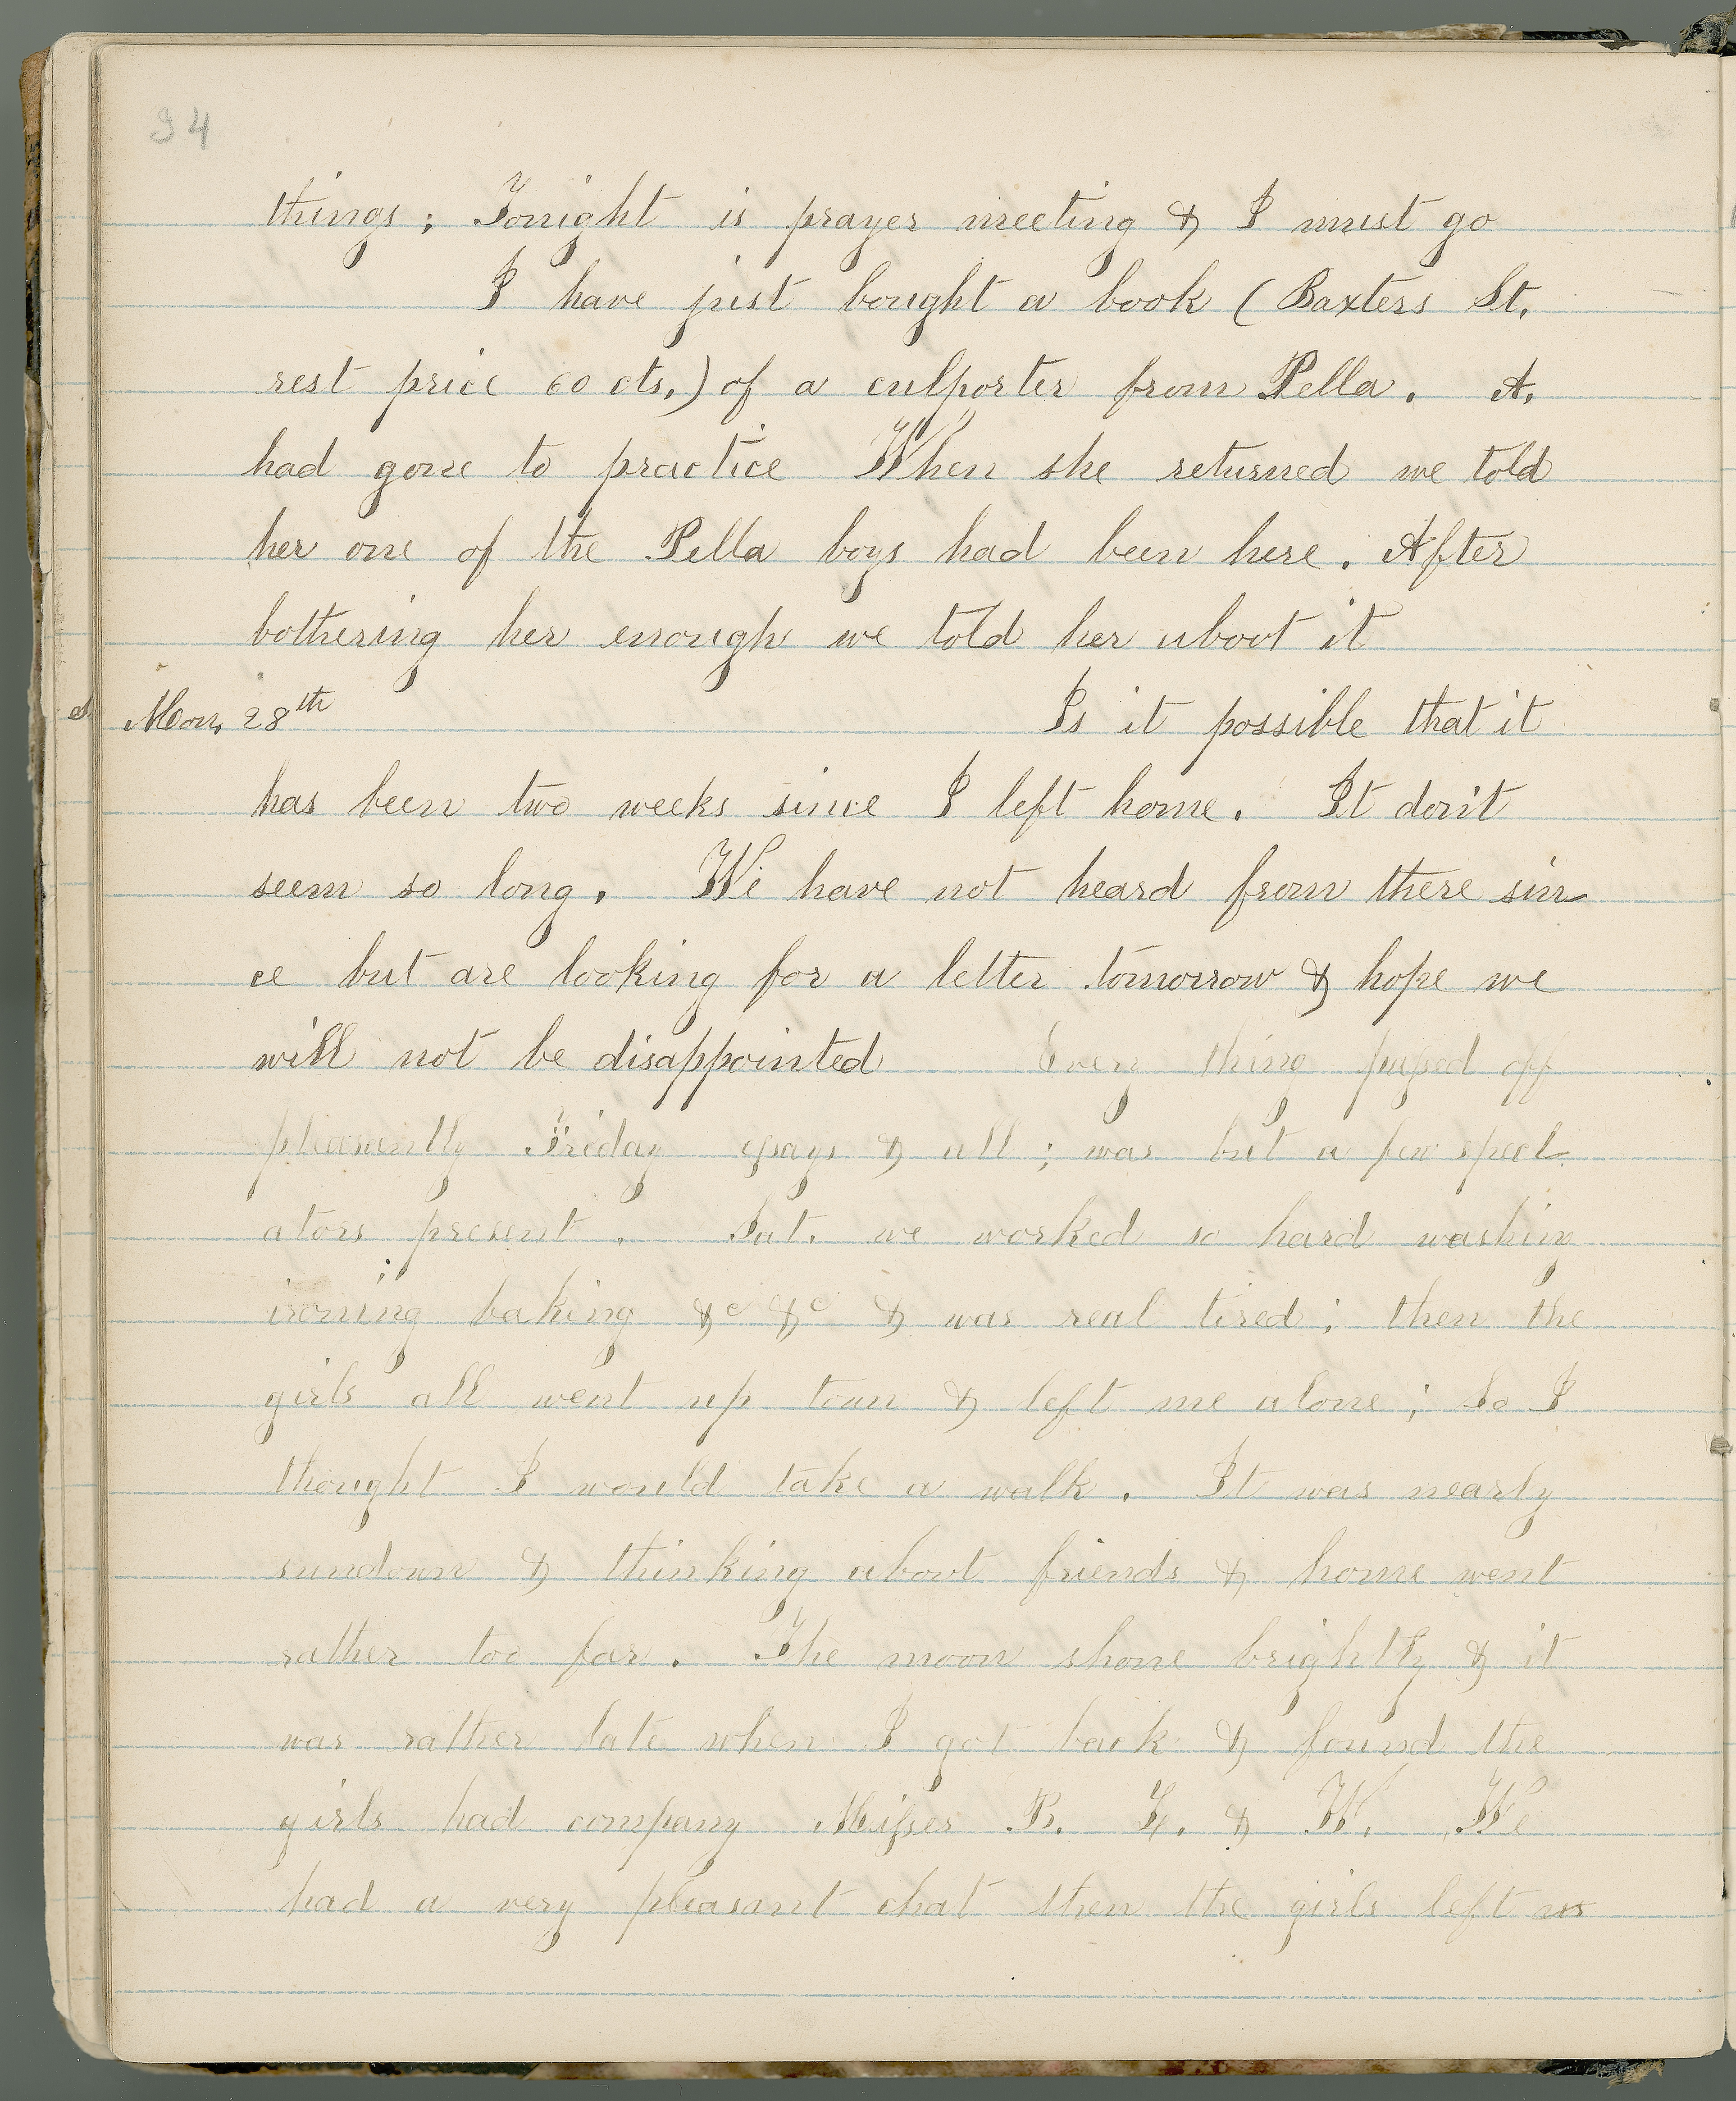 94
things; Tonight is prayer meeting & I must go
I have just bought a book (Baxters St.
rest price 60 cts.) of a culporter from Pella. A.
had gone to practice When she returned we told
her one of the Pella boys had been here. After
bothering her enough we told her about it
Mon, 28th Is it possible that it
has been two weeks since I left home. It don't
seem so long. We have not heard from there sin
ce but are looking for a letter tomorrow & hope we
will not be disappointed Every thing passed off
pleasantly Friday essays & all; was but a few spect
ators present. Sat. we worked so hard washing
ironing baking &c &c & was real tired; then the
girls all went up town & left me alone; So I
thought I would take a walk. It was nearly
sundown & thinking about friends & home went
rather too far. The moon shone brightly & it
was rather late when I got back & found the
girls had company Misses B. & W. We
had a very pleasant chat then the girls left us